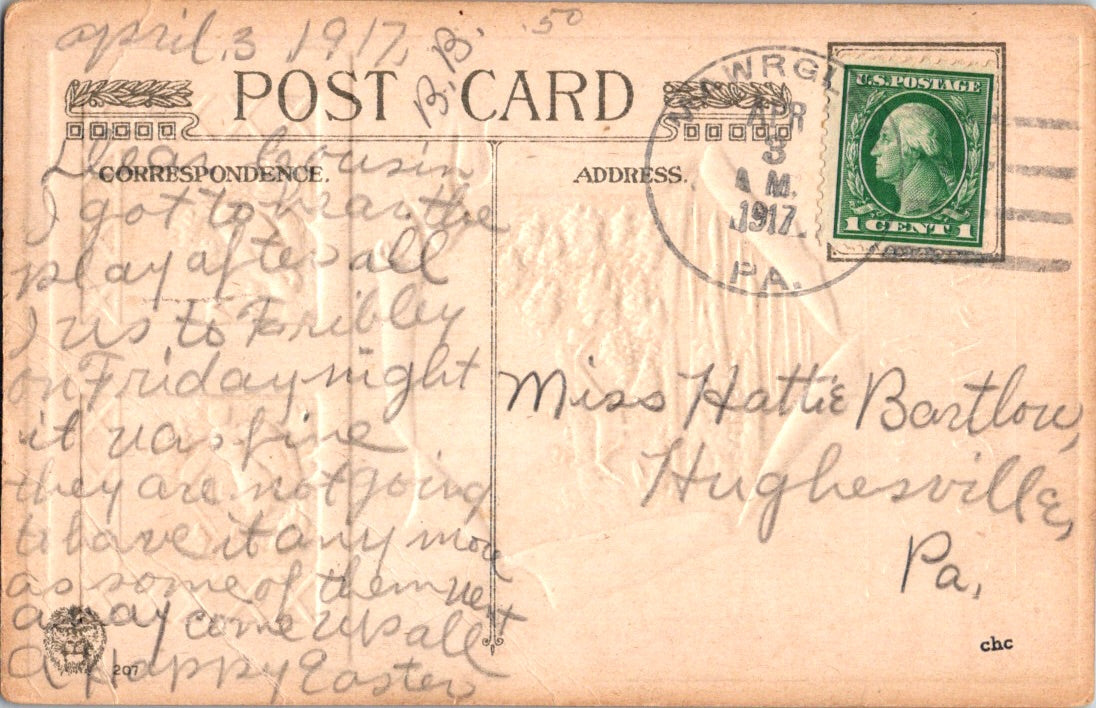 april. 3 1917,
B.B.
.50
POST CARD
CORRESPONDENCE.
ADDRESS.
APR
3
A M.
1917.
PA.
U.S. POSTAGE
1 CENT 1
Dear Cousin
I got to hear the
play after all
I us to Fribley
on Friday night
it was fine
they are not going
to have it any more
as some of them went
away come up all
A Happy Easter
Miss Hattie Bartlow,
Hughesville,
Pa,
207
chc